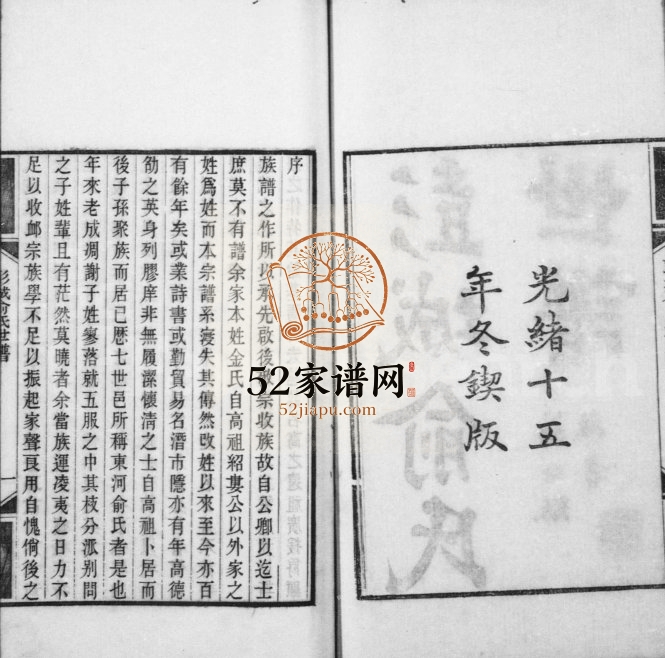 光緒十五
年冬鍥版
序
族譜之作所以承先啟後宗收族故自公卿以迄士
庶莫不有譜余家本姓金氏自高祖紹婁公以外家之
姓爲姓而本宗譜系寖失其傳然改姓以來至今亦百
有餘年矣或業詩書或勤貿易名潛市隱亦有年高德
劭之英身列膠庠非無履潔懷清之士自高祖卜居而
後子孫聚族而居已歷七世邑所稱東河俞氏者是也
年來老成凋謝子姓寥落就五服之中其枝分派別問
之子姓輩且有茫然莫曉者余當族運凌夷之日力不
足以收䘏宗族學不足以振起家聲良用自愧倘後之
彭城俞氏世譜
52家谱网
52jiapu.com